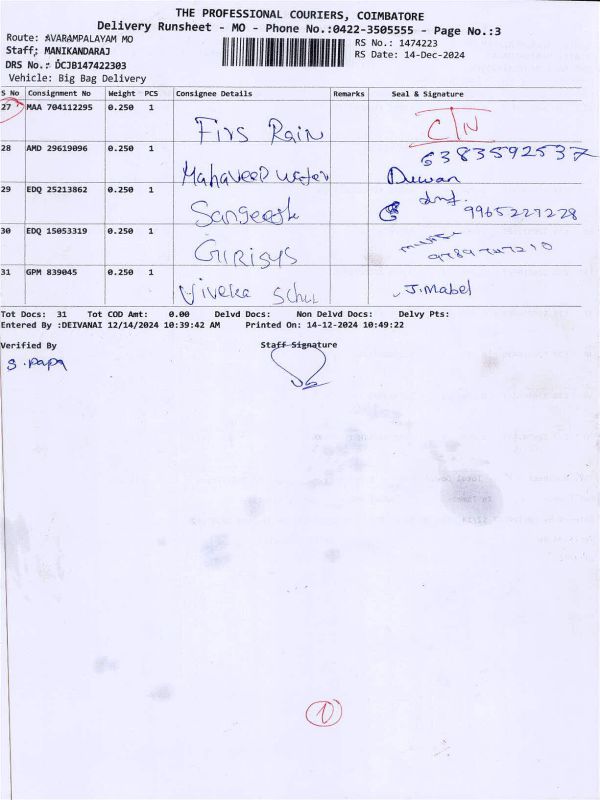 THE PROFESSIONAL COURIERS, COIMBATORE
Delivery Runsheet - MO - Phone No.:0422-3505555 - Page No.:3
Route: AVARAMPALAYAM MO
RS No.: 1474223
Staff: MANIKANDARAJ
RS Date: 14-Dec-2024
DRS No.: DCJB147422303
Vehicle: Big Bag Delivery
S No Consignment No Weight PCS Consignee Details Remarks Seal & Signature
27 MAA 704112295 0.250 1 Firs Rain C/N
28 AMD 29619096 0.250 1 Mahaveer 6383592537
Duwan
29 EDQ 25213862 0.250 1 Sangeeth 9965227228
30 EDQ 15053319 0.250 1 Girisys
31 GPM 839045 0.250 1 Viveka Schul J.Mabel
Tot Docs: 31 Tot COD Amt: 0.00 Delvd Docs: Non Delvd Docs: Delvy Pts:
Entered By :DEIVANAI 12/14/2024 10:39:42 AM Printed On: 14-12-2024 10:49:22
Verified By Staff Signature
S. Papa
1